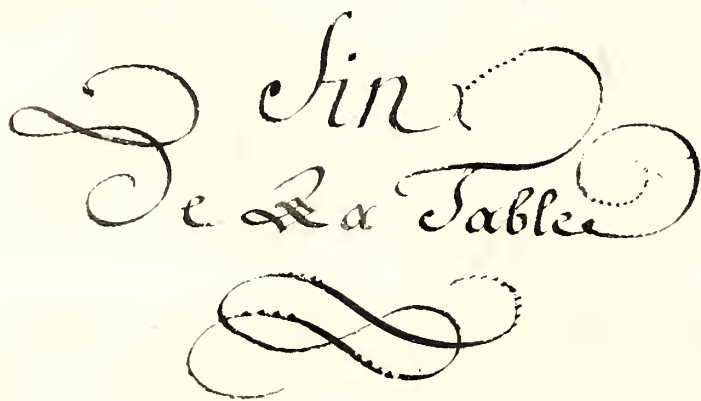 Fin
De La Table